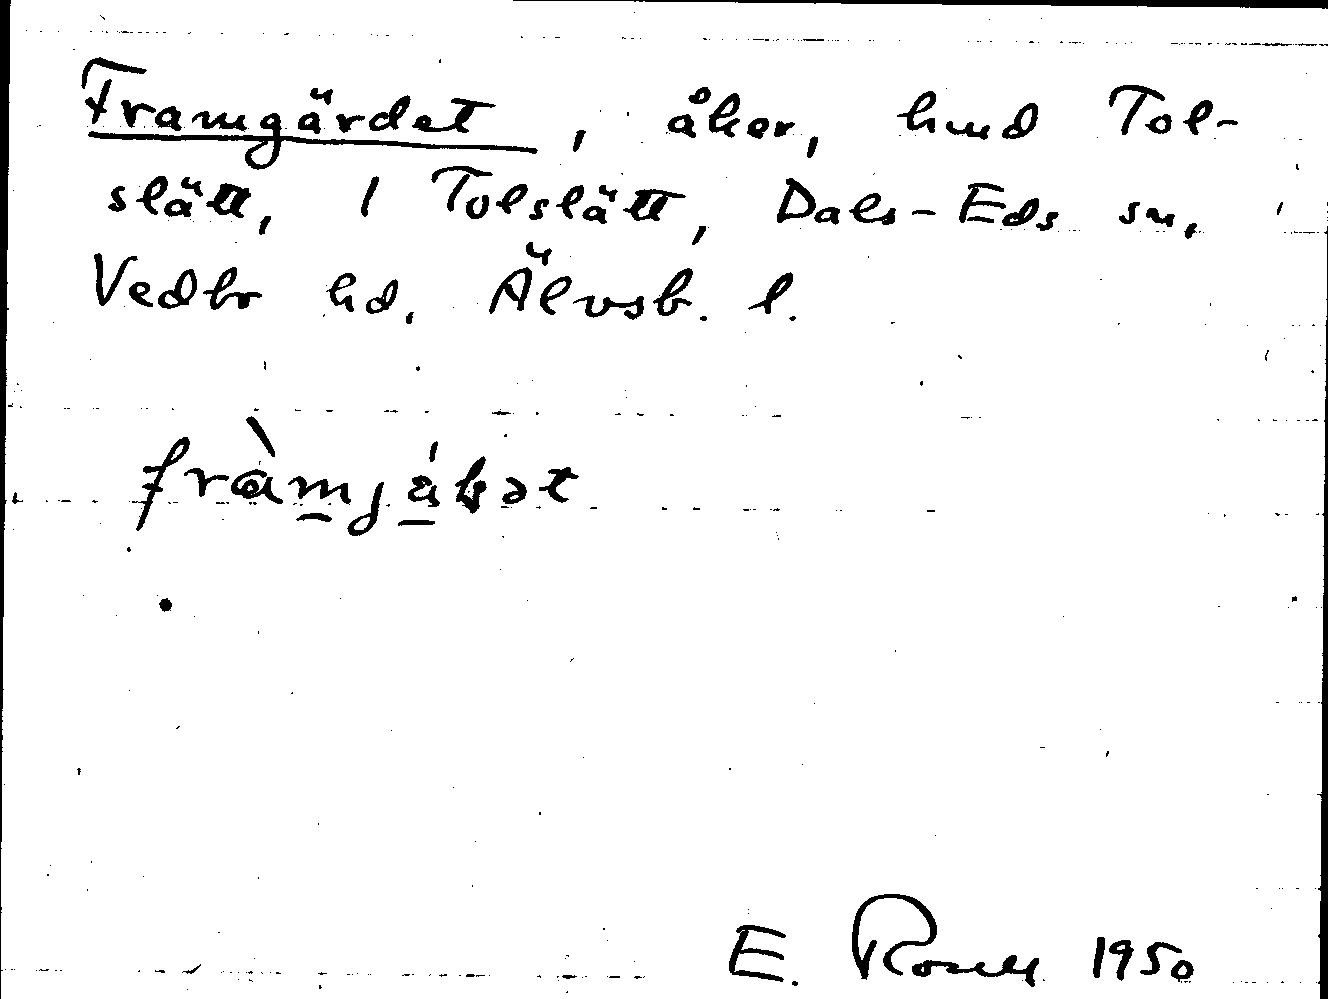 Framgärdet, åker, hmd Tol-
slätt, 1 Tolslätt, Dals-Eds sn,
Vedbo hd, Älvsb. l.
E. Rosell 1950